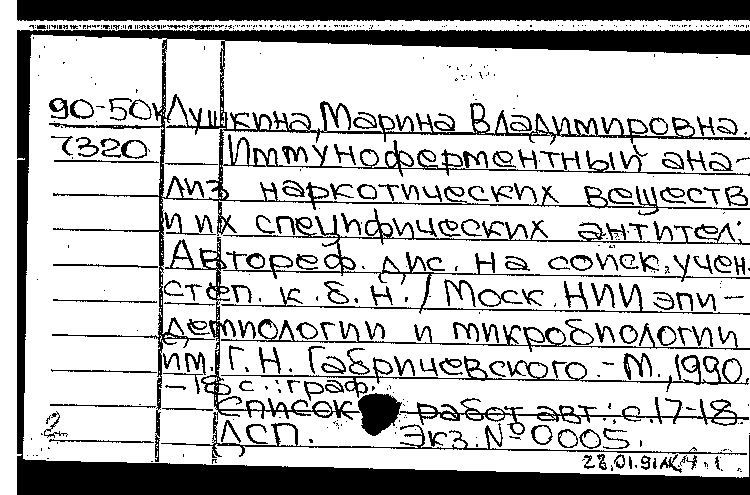 90-50к Лушкина, Марина Владимировна.
7320 Иммуноферментный ана-
лиз наркотических веществ
и их специфических антител:
Автореф. дис. на соиск. учен.
степ. к. б. н. / Моск. НИИ эпи-
демиологии и микробиологии
им. Г. Н. Габричевского. - М., 1990.
- 18 с. : граф.
Список работ авт.: с. 17-18.
2 ДСП. Экз. № 0005.
28.01.91